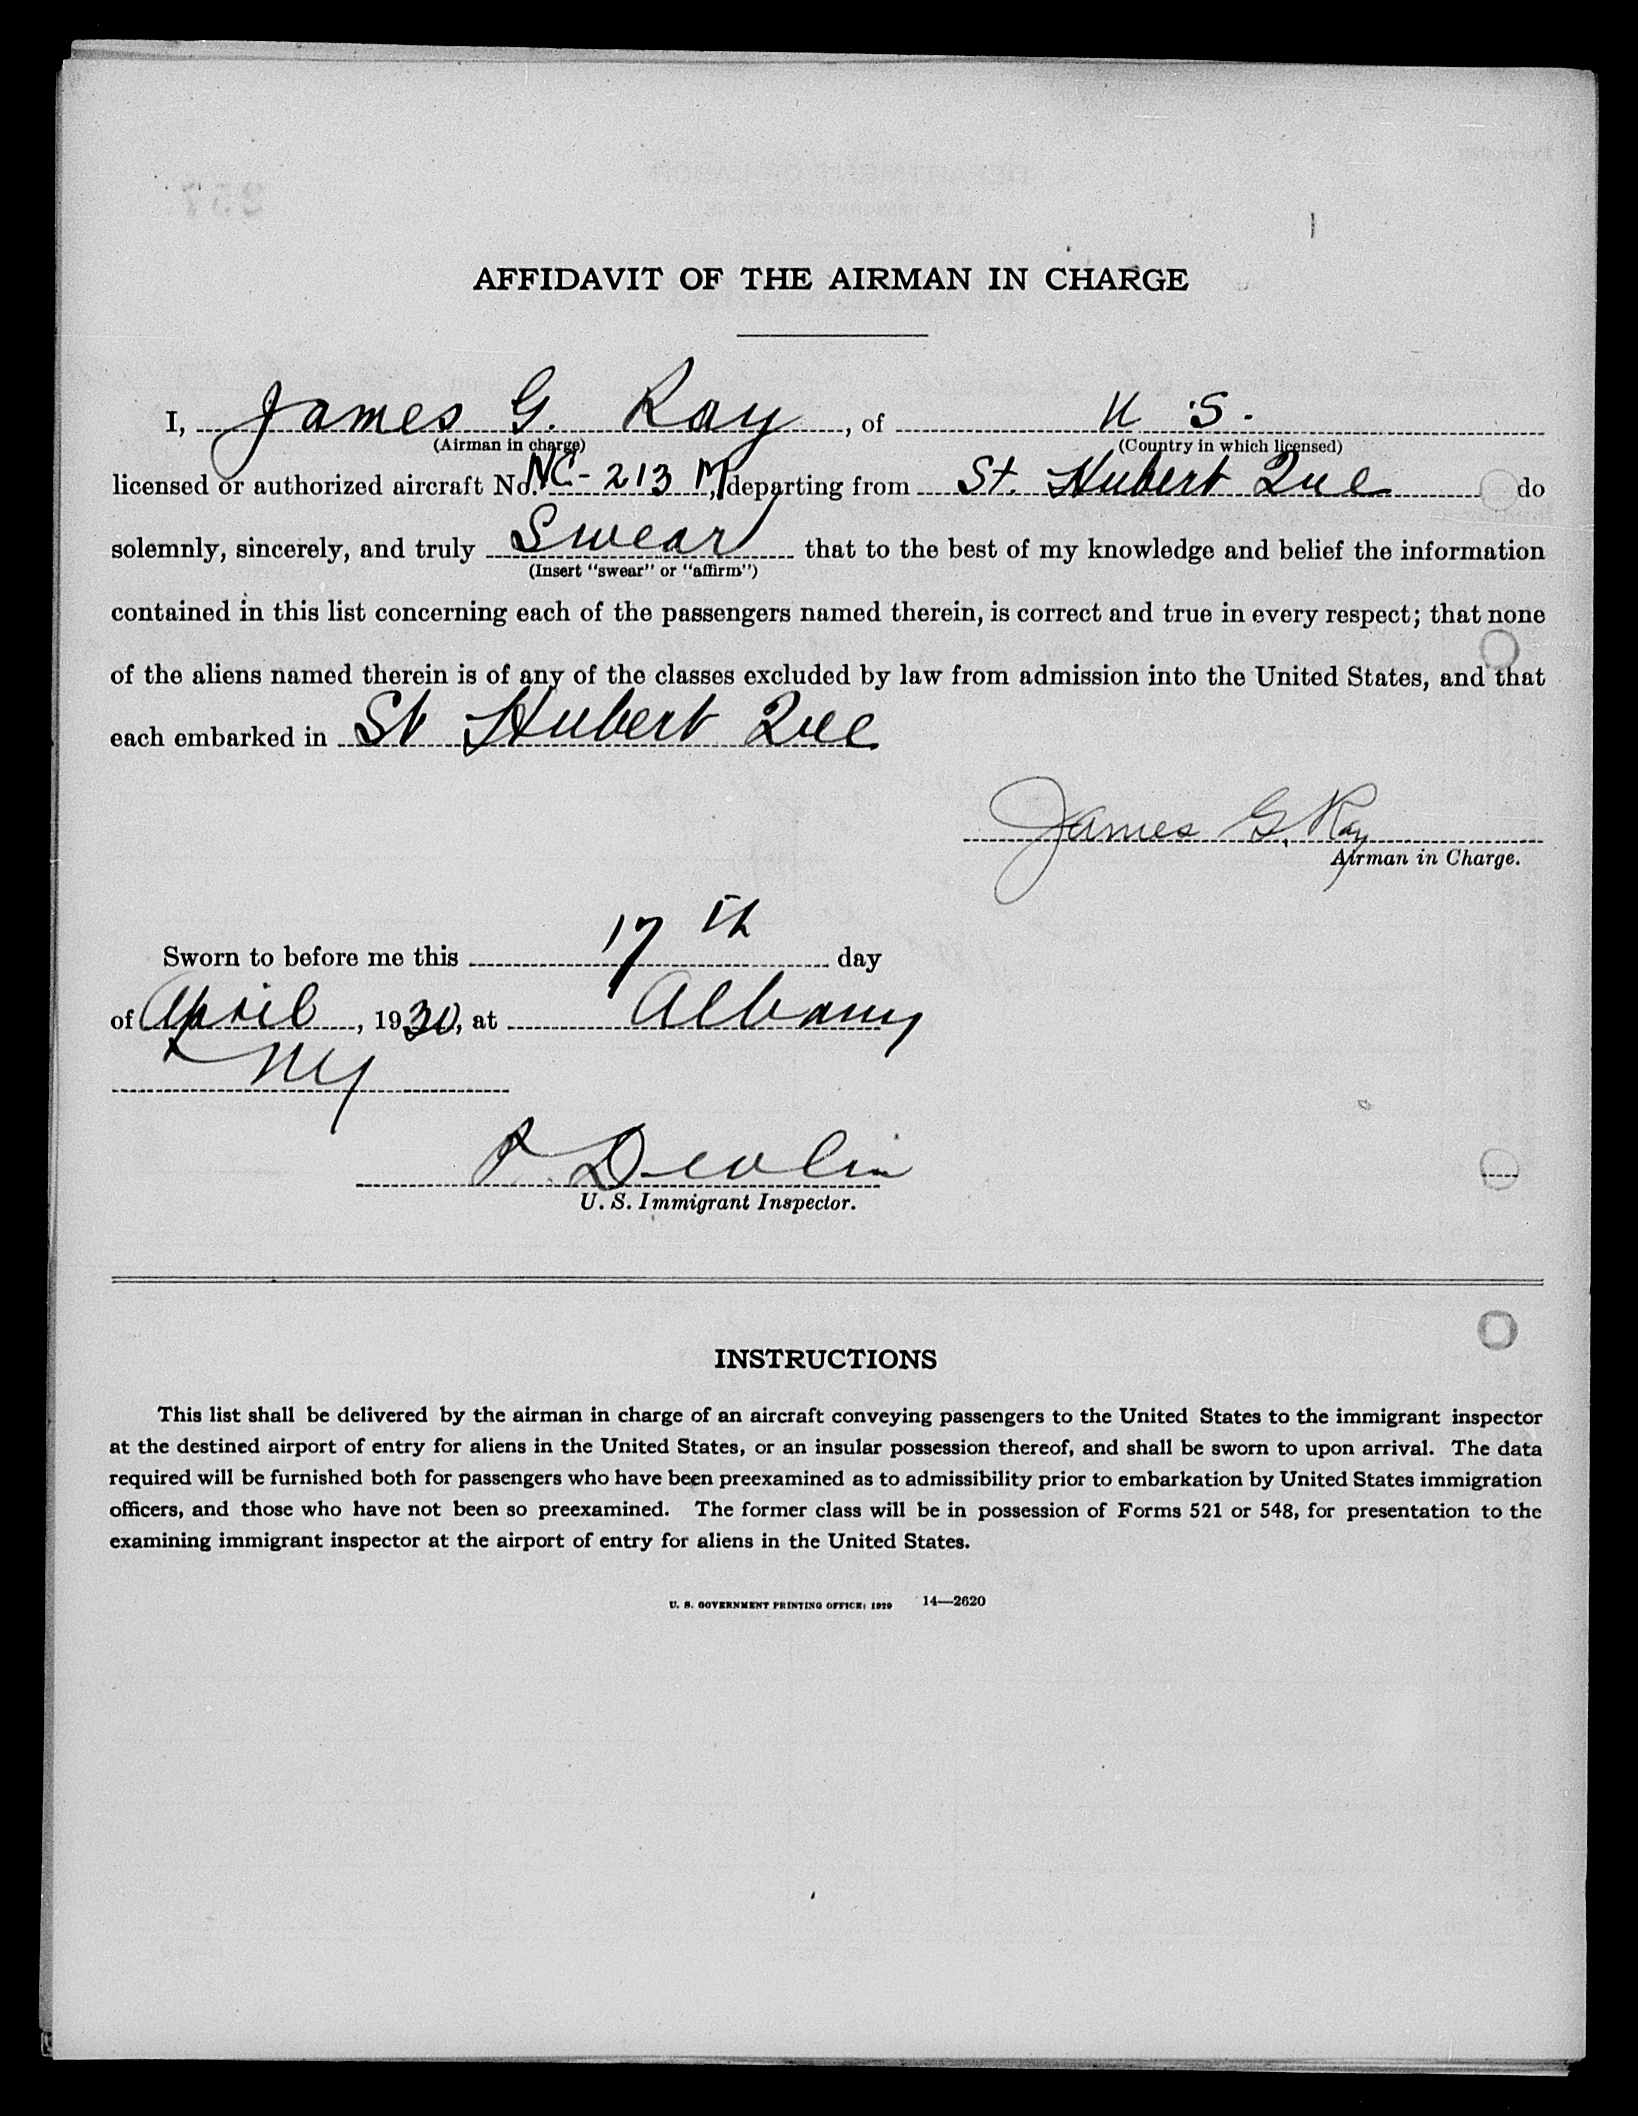 AFFIDAVIT OF THE AIRMAN IN CHARGE
I, James G. Ray, of U S.
(Airman in charge) (Country in which licensed)
licensed or authorized aircraft No. NC-213 M, departing from St. Hubert Que do
solemnly, sincerely, and truly Swear that to the best of my knowledge and belief the information
(Insert "swear" or "affirm")
contained in this list concerning each of the passengers named therein, is correct and true in every respect; that none
of the aliens named therein is of any of the classes excluded by law from admission into the United States, and that
each embarked in St Hubert Que
James G. Ray
Airman in Charge.
Sworn to before me this 17th day
of April, 1930, at Albany
NY
P. Devlin
U. S. Immigrant Inspector.
INSTRUCTIONS
This list shall be delivered by the airman in charge of an aircraft conveying passengers to the United States to the immigrant inspector
at the destined airport of entry for aliens in the United States, or an insular possession thereof, and shall be sworn to upon arrival. The data
required will be furnished both for passengers who have been preexamined as to admissibility prior to embarkation by United States immigration
officers, and those who have not been so preexamined. The former class will be in possession of Forms 521 or 548, for presentation to the
examining immigrant inspector at the airport of entry for aliens in the United States.
U. S. GOVERNMENT PRINTING OFFICE: 1929 14—2620